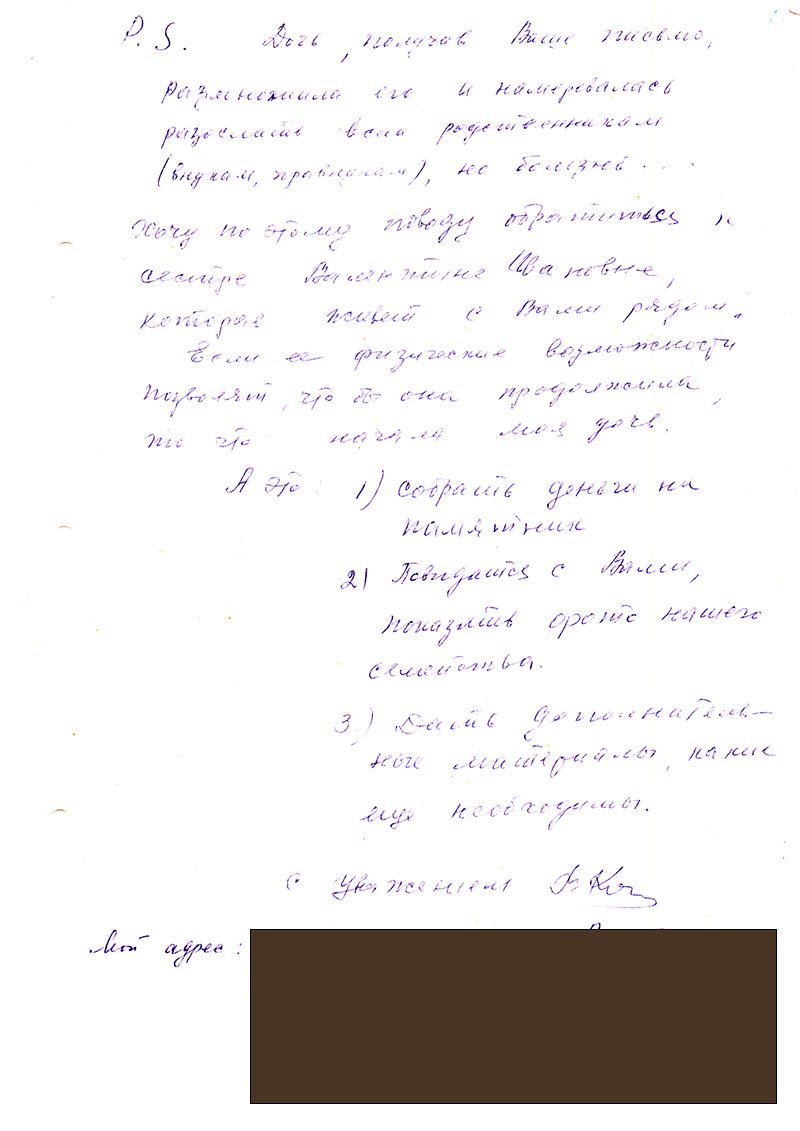 P. S. Дочь, получив Ваше письмо,
размножила его и намеревалась
разослать всем родственникам
(внукам, правнукам), но болезнь . . .
Хочу по этому поводу обратиться к
сестре Валентине Ивановне,
которая живет с Вами рядом.
Если ее физические возможности
позволят, что бы она продолжила,
то что начала моя дочь.
А это: 1) собрать деньги на
памятник
2) Повидаться с Вами,
показать фото нашего
семейства.
3.) Дать дополнитель-
ные материалы, какие
еще необходимы.
С уважением
Мой адрес: